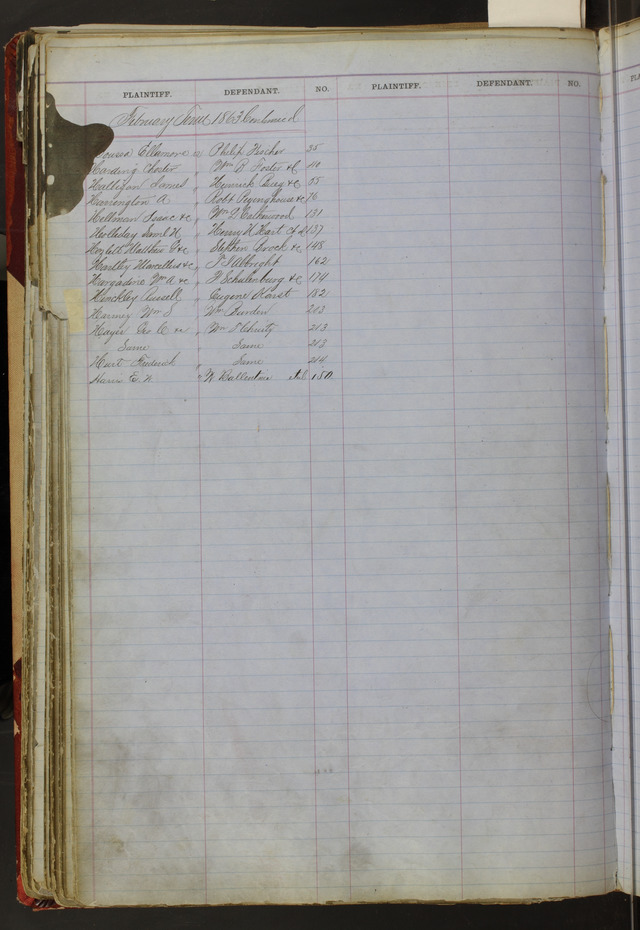 PLAINTIFF. DEFENDANT. NO. PLAINTIFF. DEFENDANT. NO.
February Term 1863 Continued
Ellemore vs Philip Fischer 35
Harding Chester " Wm B Foster &c
Halligan James " Henrick Berg &c 55
Harrington A " Robt &c 76
Hellman Isaac &c " Wm 131
Holliday Saml H " Henry H Hart 137
Hezlett Matthew G &c " Stephen Crock &c 148
Hartley Marcellus &c " Albright 162
Hargadine Wm A &c " Schulenburg &c 174
Hinckley Russell " Eugene Karst 182
Harney Wm S " Wm Burden 203
Hager Geo C " Wm 213
Same " Same 213
Hart Frederick " Same 214
Harris E N " Ballentine 150